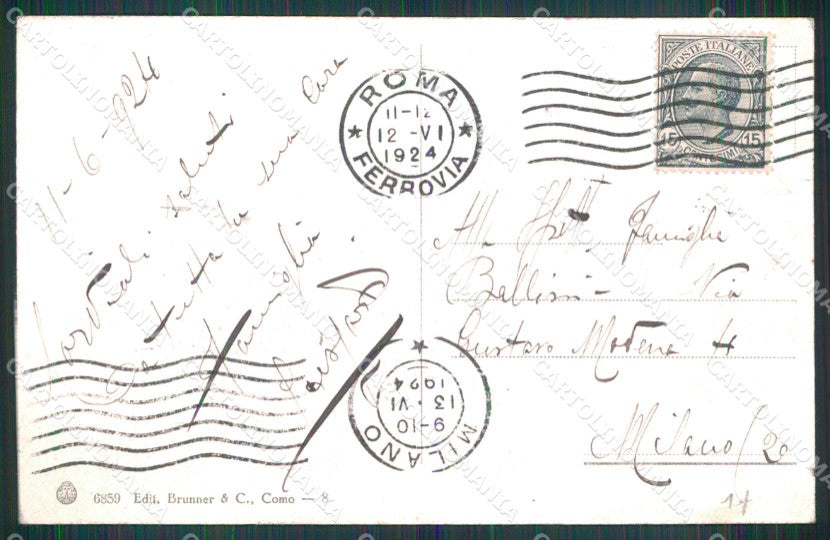 11-6-924
Cordiali saluti
a tutta la sua Cara
famiglia.
ROMA
11-12
12 -VI
1924
FERROVIA
POSTE ITALIANE
15 15
Spett. Famiglia
Bellini - Via
Gustavo Modena 4
Milano (20
MILANO
9-10
13 · VI
1924
6859 Edit. Brunner & C., Como — 8
CARTOLINOMANIA